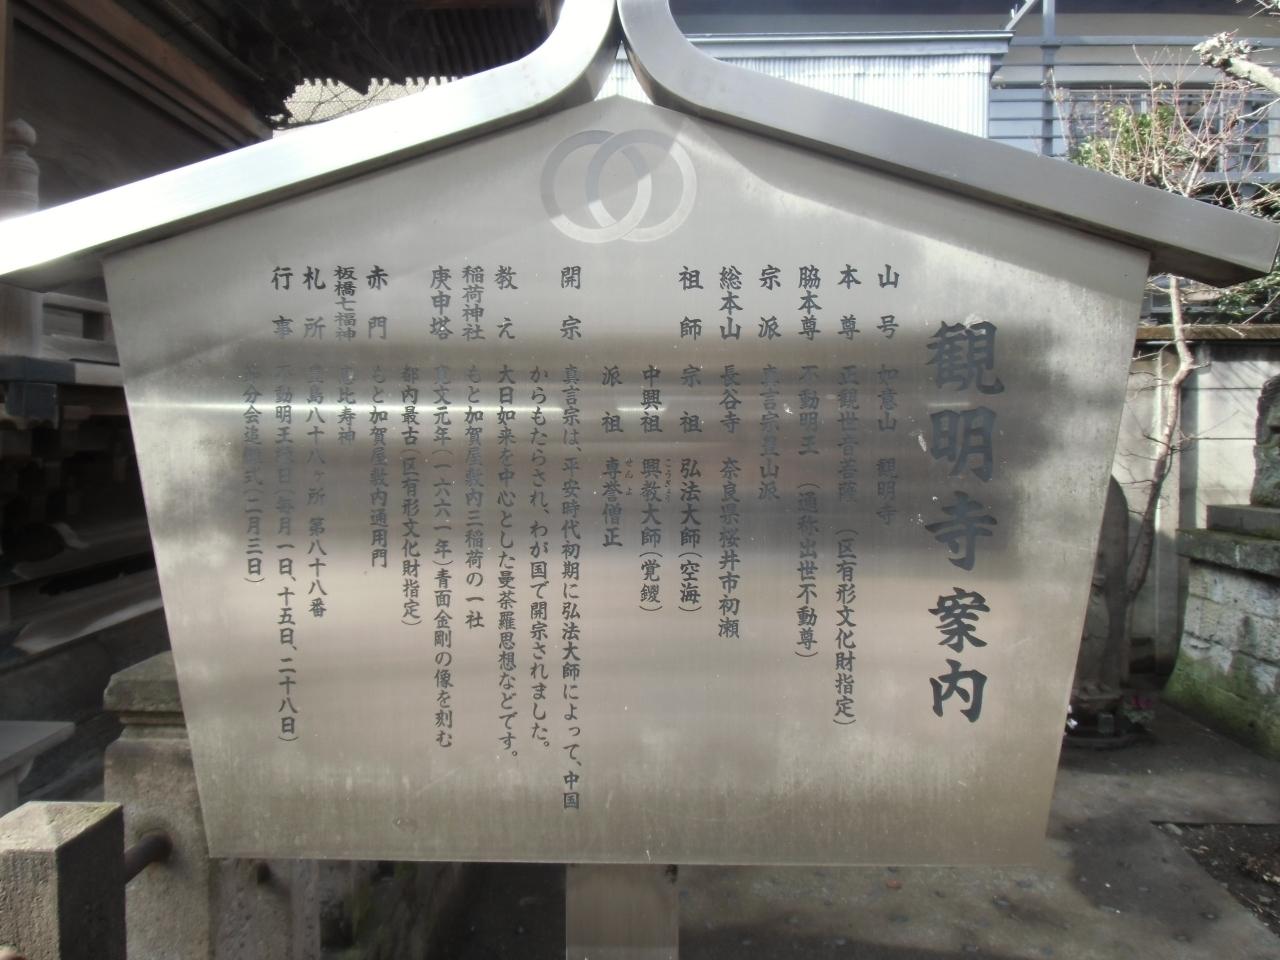 観明寺案内
山号 如意山 観明寺
本尊 正観世音菩薩 (区有形文化財指定)
脇本尊 不動明王 (通称出世不動尊)
宗派 真言宗豊山派
総本山 長谷寺 奈良県桜井市初瀬
祖師 宗祖 弘法大師(空海)
中興祖 興教大師(覚鑁)
派祖 専誉僧正
せんよ
開宗 真言宗は、平安時代初期に弘法大師によって、中国
からもたらされ、わが国で開宗されました。
教え 大日如来を中心とした曼荼羅思想などです。
稲荷神社 もと加賀屋敷内三稲荷の一社
庚申塔 寛文元年(一六六一年)青面金剛の像を刻む
都内最古(区有形文化財指定)
赤門 もと加賀屋敷内通用門
板橋七福神 恵比寿神
札所 豊島八十八ヶ所 第八十八番
行事 不動明王縁日(毎月一日、十五日、二十八日)
節分会追儺式(二月三日)